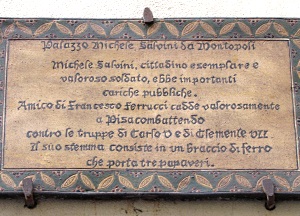 Palazzo Michele Salvini da Montopoli
Michele Salvini, cittadino esemplare e
valoroso soldato, ebbe importanti
cariche pubbliche.
Amico di Francesco Ferrucci cadde valorosamente
a Pisa combattendo
contro le truppe di Carlo V e di Clemente VII.
Il suo stemma consiste in un braccio di ferro
che porta tre papaveri.